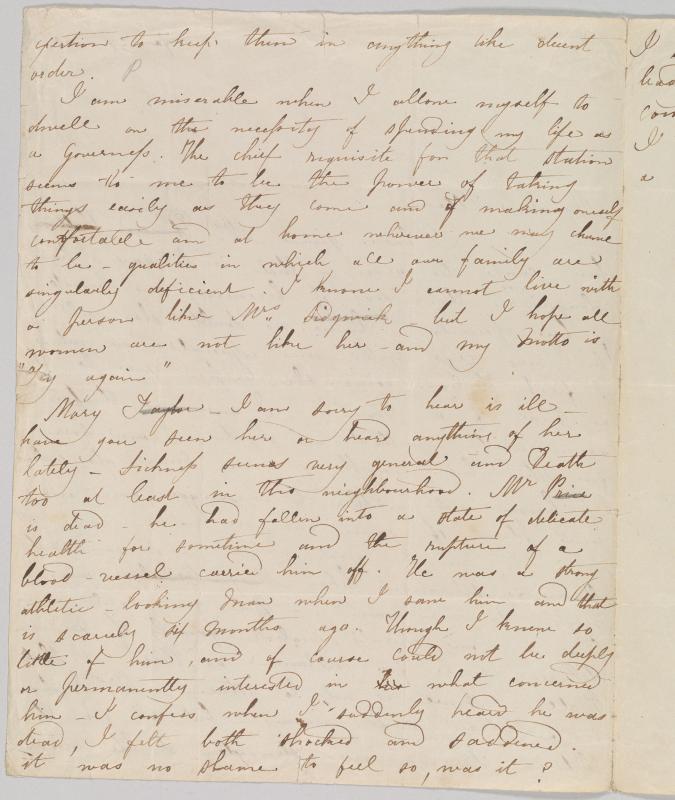 exertion to keep them in anything like decent
order.
I am miserable when I allow myself to
dwell on the necessity of spending my life as
a Governess. The chief requisite for that station
seems to me to be the power of taking
things easily as they come and of making oneself
comfortable and at home wherever we may chance
to be - qualities in which all our family are
singularly deficient. I know I cannot live with
a person like Mrs Sidgwick but I hope all
women are not like her - and my motto is
"Try again"
Mary Taylor - I am sorry to hear is ill -
have you seen her or heard anything of her
lately - Sickness seems very general and Death
too at least in this neighbourhood. Mr Price
is dead - he had fallen into a state of delicate
health for sometime and the rupture of a
blood-vessel carried him off. He was a strong
athletic-looking man when I saw him and that
is scarcely six months ago. Though I knew so
little of him, and of course could not be deeply
or permanently interested in what concerned
him - I confess when I suddenly heard he was
dead, I felt both shocked and saddened.
it was no shame to feel so, was it?
I
lead
com
I
a